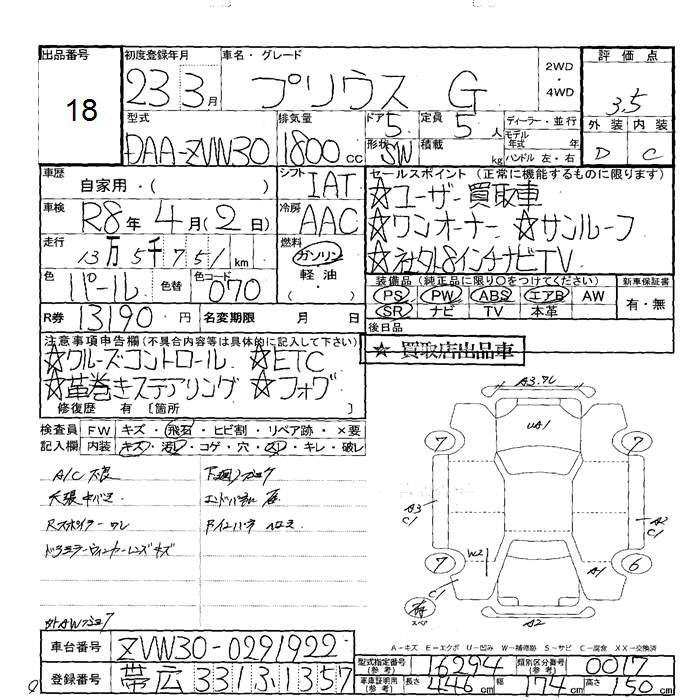 出品番号 初度登録年月 車名・グレード 2WD・4WD 評価点
18 23 3月 プリウス G 3.5
型式 排気量 ドア 5 定員 5人 ディーラー・並行 外装 内装
DAA-ZVW30 1800cc 形状 SW 積載 kg モデル年式 年 ハンドル 左・右 D C
車歴 自家用・( ) シフト IAT セールスポイント (正常に機能するものに限ります)
☆ユーザー買取車
車検 R8年4月(2日) 冷房 AAC ☆ワンオーナー ☆サンルーフ
走行 13万5千751km 燃料 ガソリン・軽油・( ) ☆社外8インチナビTV
色 パール 色替 色コード 070 装備品(純正品に限り○をつけてください) 新車保証書
PS PW ABS エアB AW 有・無
SR ナビ TV 本革
R券 13190円 名変期限 月 日 後日品
注意事項申告欄(不具合内容等は具体的に記入して下さい) ☆買取店出品車
☆クルーズコントロール ☆ETC
☆革巻きステアリング ☆フォグ
修復歴 有 〔箇所 〕
検査員 FW キズ・飛石・ヒビ割・リペア跡・×要
記入欄 内装 キズ・汚レ・コゲ・穴・スレ・キレ・破レ
A/C不良
天張
Rスポイラー ワレ
ドアミラーウィンカーレンズキズ
A3
UA1
7 7
A3 C1 A2 C1
W2 A1
7 6
C1
A2
A-キズ E-エクボ U-凹み W-補修跡 S-サビ C-腐食 XX-交換済
車台番号 ZVW30-0291922 型式指定番号(参考) 16294 類別区分番号(参考) 0017
登録番号 帯広 331ふ1357 車庫証明用(参考) 長さ 446cm 幅 174cm 高さ 150cm